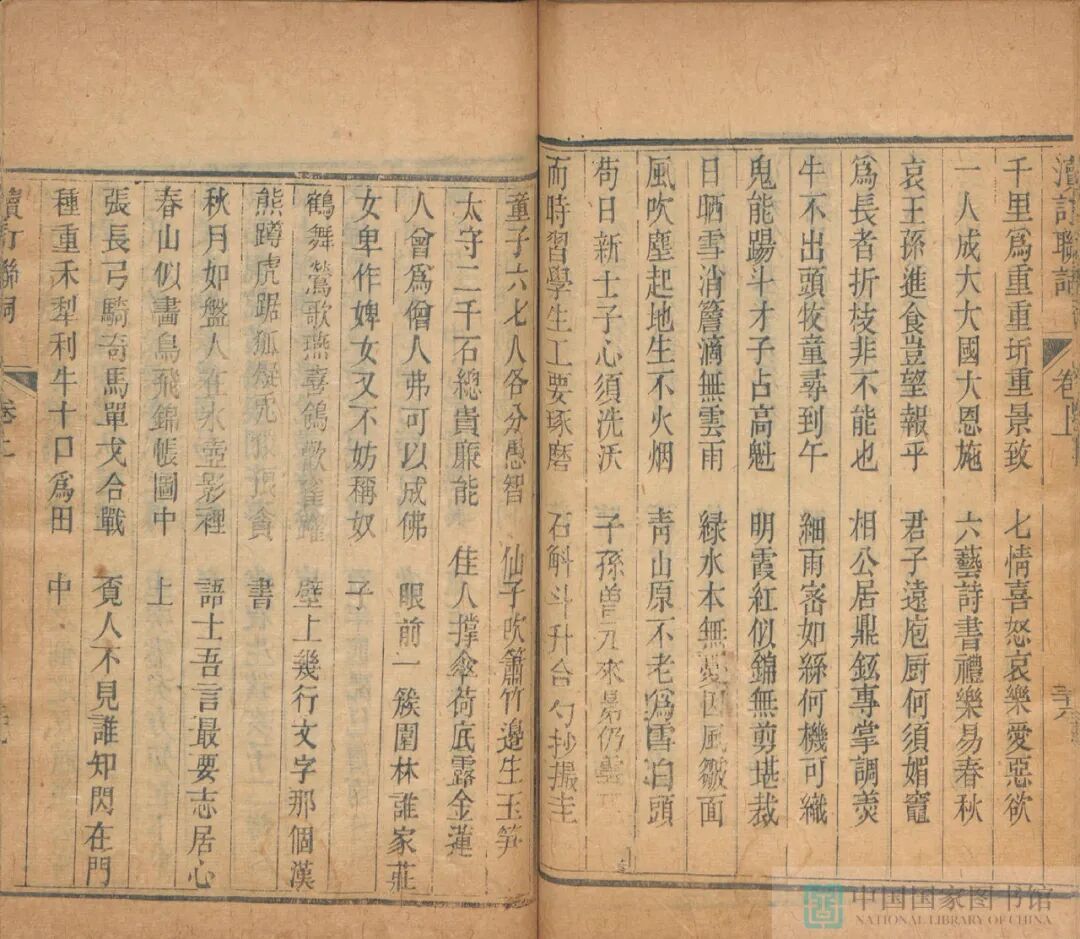 千里爲重重重圻重景致 七情喜怒哀樂愛惡欲
一人成大大大國大恩施 六藝詩書禮樂易春秋
哀王孫進食豈望報乎 君子遠庖厨何須媚竈
爲長者折枝非不能也 相公居鼎鉉專掌調羮
牛不出頭牧童尋到午 細雨密如絲何機可織
鬼能踢斗才子占高魁 明霞紅似錦無剪堪裁
日晒雪消簷滴無雲雨 綠水本無憂因風皺面
風吹塵起地生不火烟 靑山原不老爲雪泊頭
苟日新士子心須洗沃 子孫曾元來昴仍雲
而時習學生工要琢磨 石斛斗升合勺抄撮圭
童子六七人各分愚智 仙子吹簫竹邊生玉笋
太守二千石總貴廉能 佳人撑傘荷底露金蓮
人曾爲僧人弗可以成佛 眼前一簇園林誰家莊
女卑作婢女又不妨稱奴 子
鶴舞鶯歌燕喜鴿歡雀躍 壁上幾行文字那個漢
熊蹲虎踞狐疑 貪 書
秋月如盤人在氷壺影裡 語士吾言最要志居心
春山似畵鳥飛錦帳圖中 上
張長弓騎奇馬單戈合戰 覔人不見誰知閃在門
種重禾犁利牛十口爲田 中
卷上
三十六
中国国家图书馆
NATIONAL LIBRARY OF CHINA